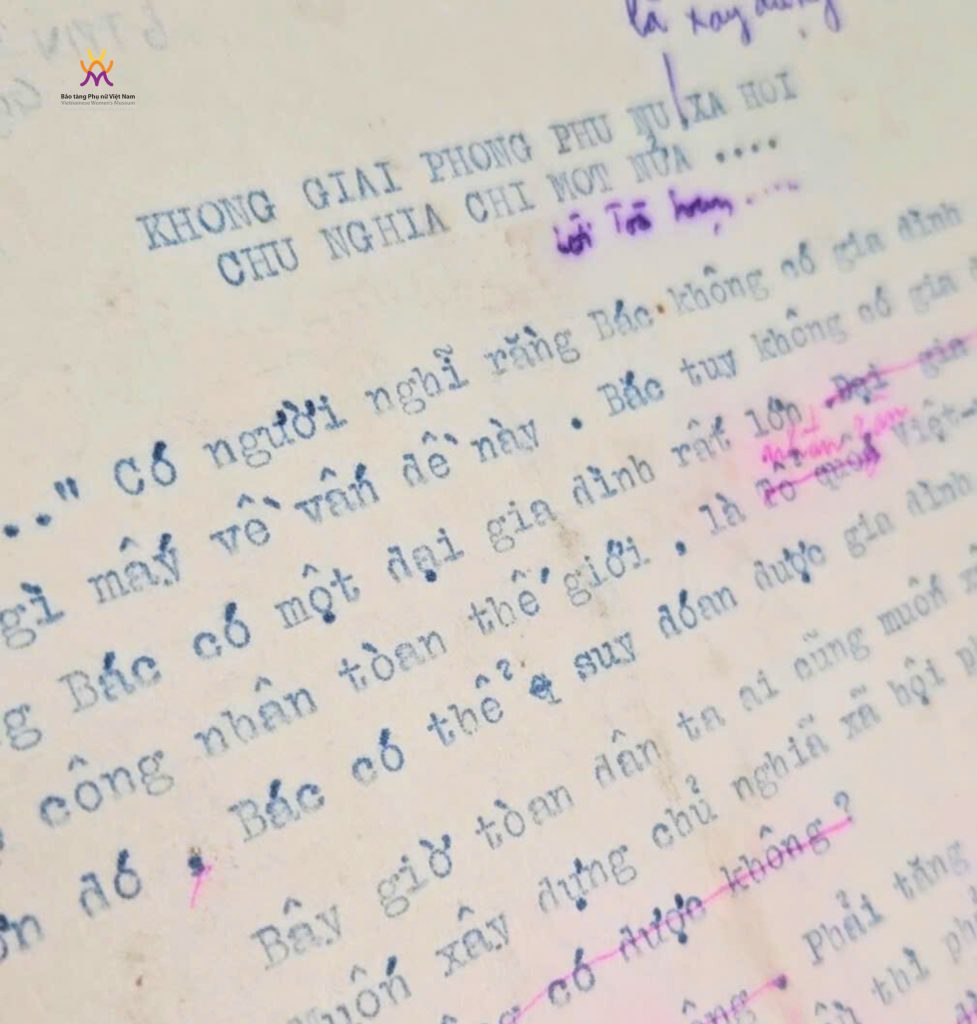 Bảo tàng Phụ nữ Việt Nam
Vietnamese Women's Museum
là xây dựng
KHONG GIAI PHONG PHU NU XA HOI
CHU NGHIA CHI MOT NỬA ....
.." Có người nghĩ rằng Bác không có gia đình
gì mấy về vấn đề này . Bác tuy không có gia
Bác có một đại gia đình rất lớn . Đại gia
công nhân toàn thế giới . là Tổ quốc Việt-
nhân dân
đó , Bác có thể suy đóan được gia đình
Bây giờ tòan dân ta ai cũng muốn
muốn xây dựng chủ nghiã xã hội
có được không ?
. Phải tăng
thì